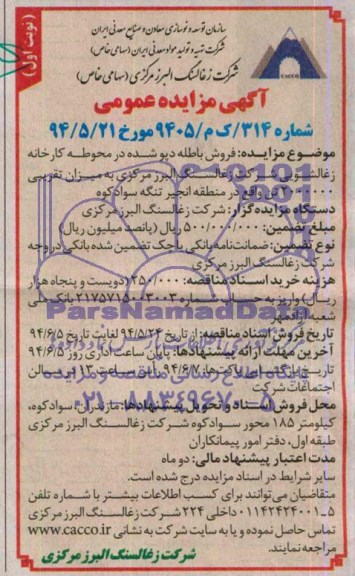 (نوبت اول)
سازمان توسعه و نوسازی معادن و صنایع معدنی ایران
شرکت تهیه و تولید مواد معدنی ایران (سهامی خاص)
شرکت زغالسنگ البرز مرکزی (سهامی خاص)
CACCO
آگهی مزایده عمومی
شماره ۳۱۴/ک م/۹۴۰۵ مورخ ۹۴/۵/۲۱
موضوع مزایده: فروش باطله دپو شده در محوطه کارخانه
زغالشویی شرکت زغالسنگ البرز مرکزی به میزان تقریبی
تن واقع در منطقه انجیر تنگه سوادکوه
دستگاه مزایده گزار: شرکت زغالسنگ البرز مرکزی
مبلغ تضمین: ۵۰۰/۰۰۰/۰۰۰ ریال (پانصد میلیون ریال)
نوع تضمین: ضمانت‌نامه بانکی یا چک تضمین شده بانکی در وجه
شرکت زغالسنگ البرز مرکزی
هزینه خرید اسناد مناقصه: ۲۵۰/۰۰۰ (دویست و پنجاه هزار
ریال) واریز به حساب شماره ۲۱۷۵۷۱۵۰۰۳۰۰۳ بانک ملی
شعبه آزادمهر
ParsNamadData
تاریخ فروش اسناد مناقصه: از تاریخ ۹۴/۵/۲۴ لغایت تاریخ ۹۴/۶/۵
آخرین مهلت ارائه پیشنهادها: پایان ساعت اداری روز ۹۴/۶/۵
تاریخ بازگشایی پاکت‌ها: ۹۴/۶/۷ رأس ساعت ۱۳ در سالن
اجتماعات شرکت
پایگاه اطلاع رسانی مناقصه و مزایده
۰۲۱-۸۸۳۴۹۶۷۰-۵
محل فروش اسناد و تحویل پیشنهادها: مازندران، سوادکوه،
کیلومتر ۱۸۵ محور سوادکوه شرکت زغالسنگ البرز مرکزی
طبقه اول، دفتر امور پیمانکاران
مدت اعتبار پیشنهاد مالی: دو ماه
سایر شرایط در اسناد مزایده درج شده است.
متقاضیان می‌توانند برای کسب اطلاعات بیشتر با شماره تلفن
۵-۰۱۱۴۲۴۲۴۰۰۱ داخلی ۲۲۴ شرکت زغالسنگ البرز مرکزی
تماس حاصل نموده و یا به سایت شرکت به نشانی www.cacco.ir
مراجعه نمایند.
شرکت زغالسنگ البرز مرکزی